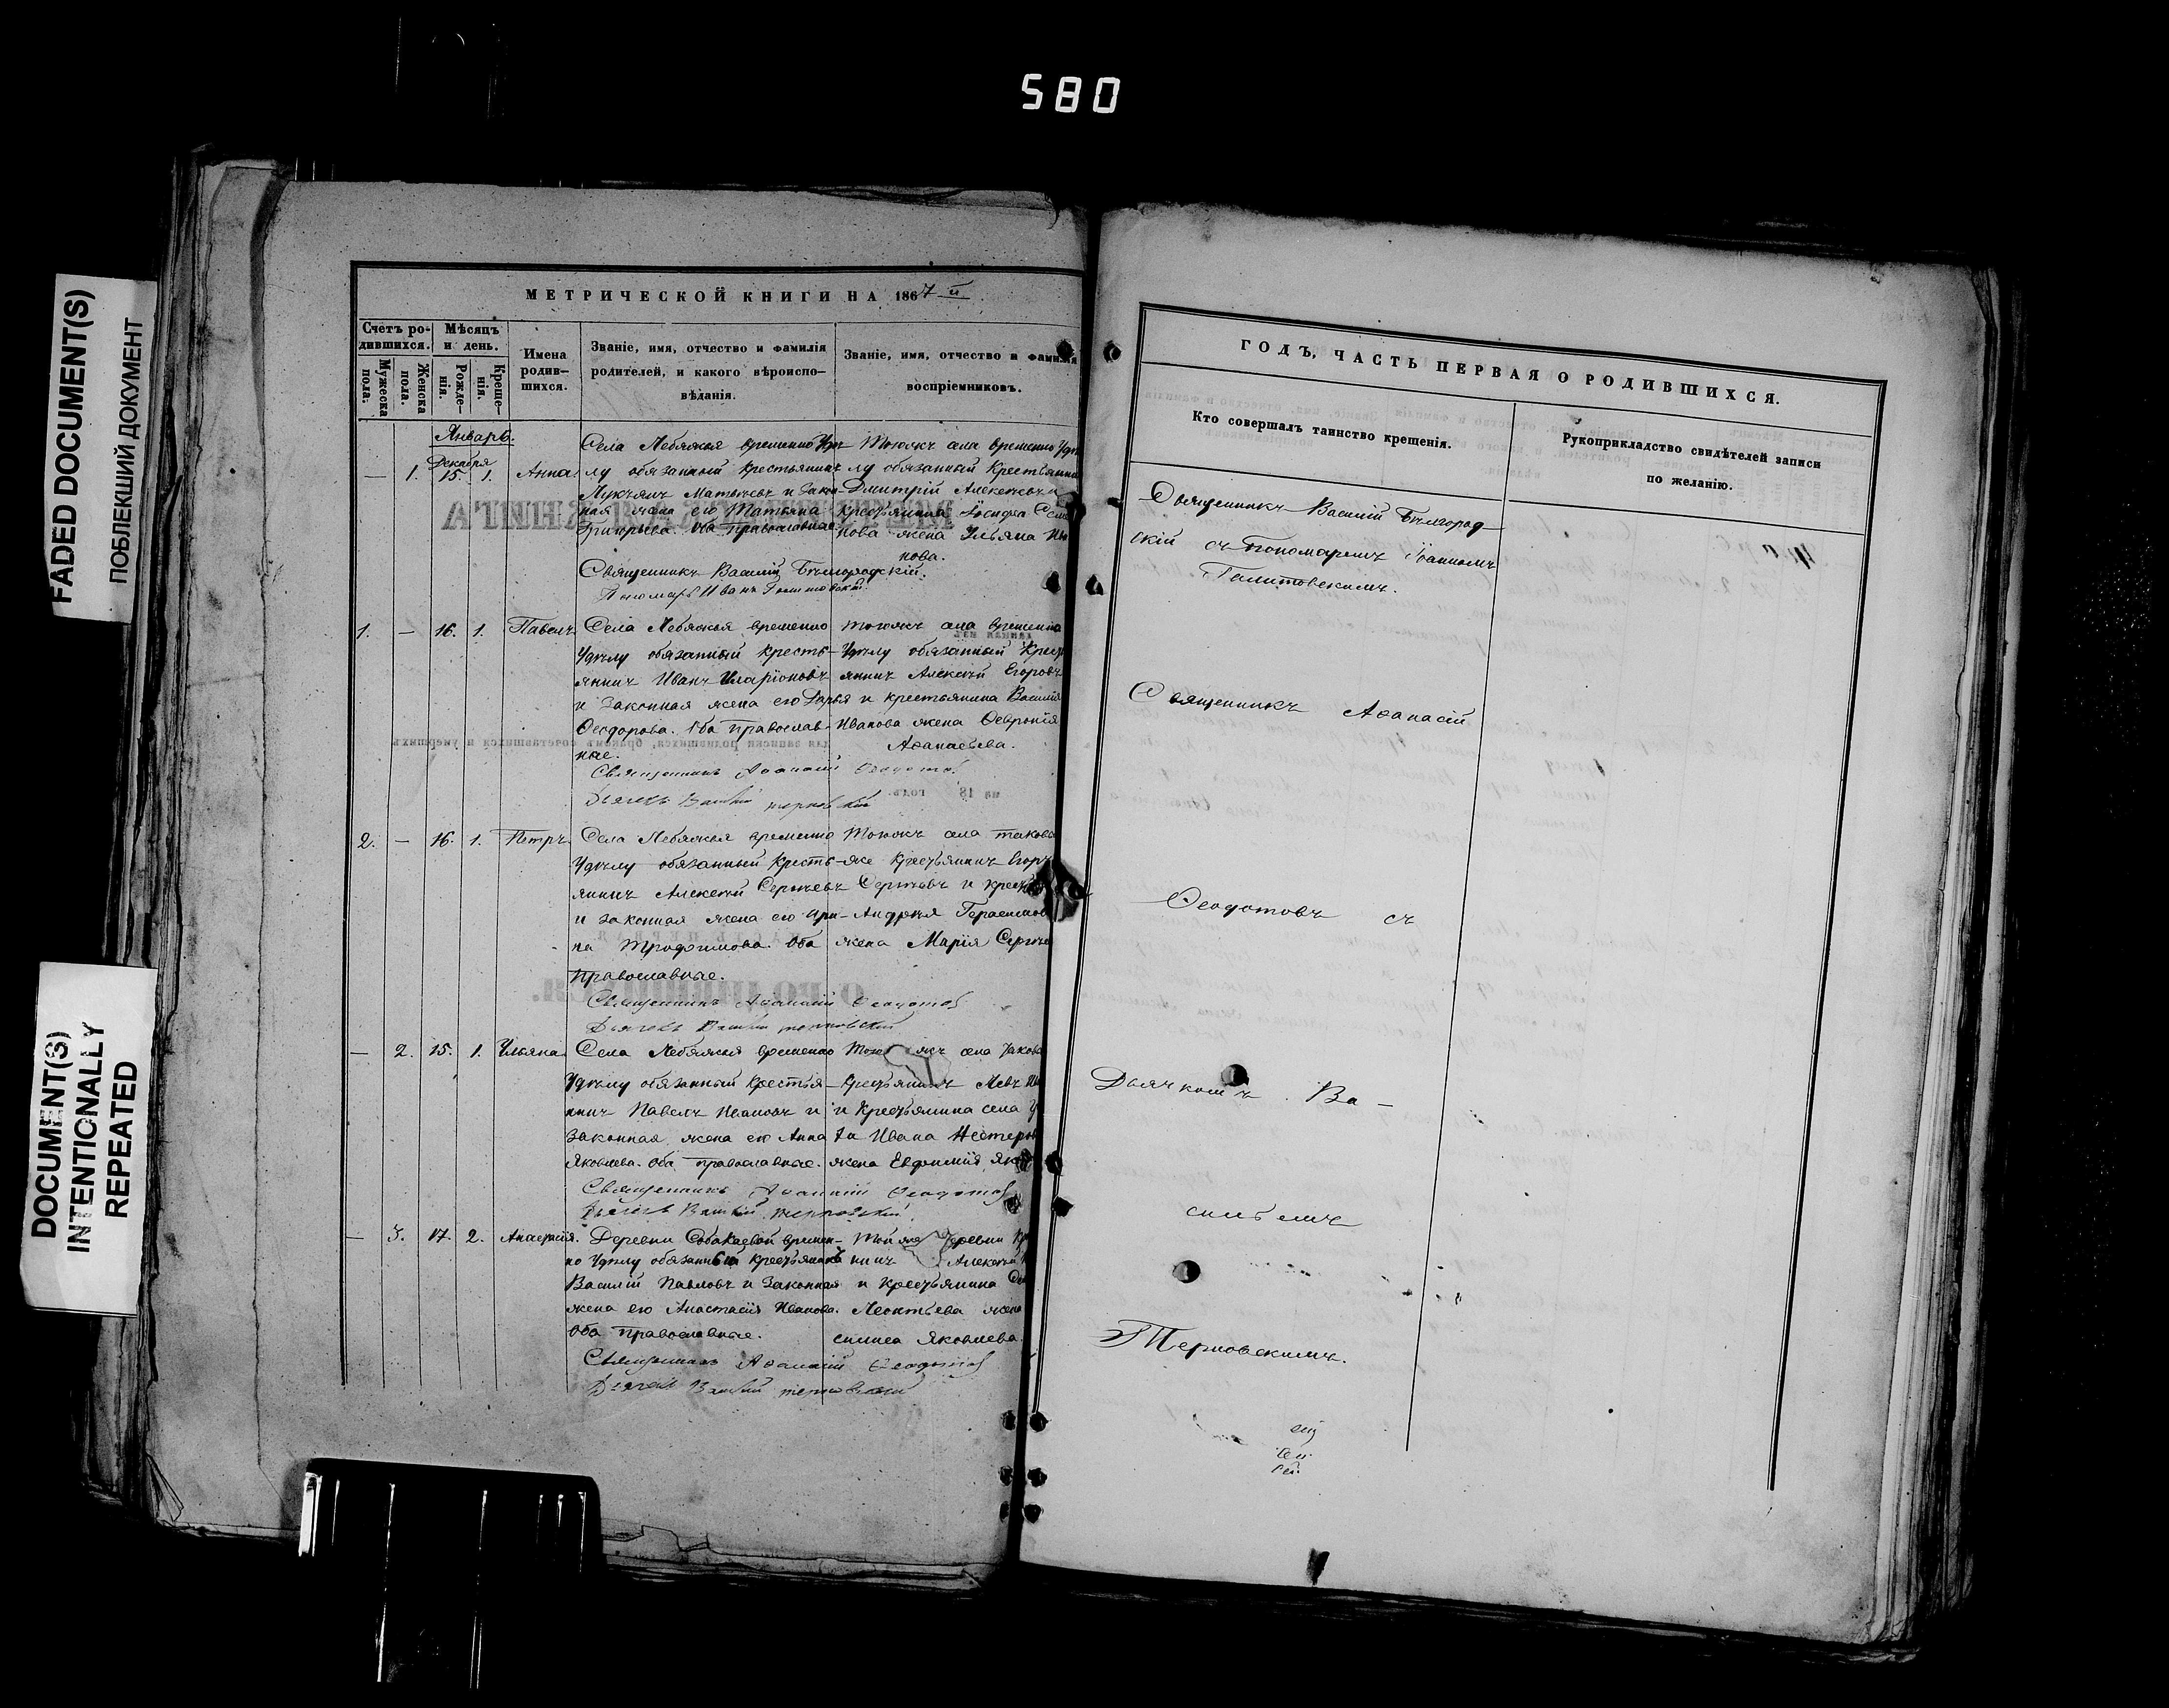 580
FADED DOCUMENT(S)
ПОБЛЕКШИЙ ДОКУМЕНТ
DOCUMENT(S)
INTENTIONALLY
REPEATED
МЕТРИЧЕСКОЙ КНИГИ НА 1867 й
Счетъ родившихся.
Мѣсяцъ и день.
Мужеска пола.
Женска пола.
Рожденія.
Крещенія.
Имена родившихся.
Званіе, имя, отчество и фамилія
родителей, и какого вѣроиспо-
вѣданія.
Званіе, имя, отчество и фамилія
воспріемниковъ.
Январь.
Декабря
— 1. 15. 1. Анна.
Села Лебяжья временно Удѣ-
лу обязанный крестьянинъ
Лукьянъ Матвѣевъ и закон-
ная жена его Татьяна
Григорьева. Оба православные.
Священникъ Василій Бѣлгородскій.
Пономарь Иванъ
Тогожъ села временно Удѣ
лу обязанный крестьянинъ
Дмитрій Алексѣевъ и
крестьянина Іосифа
нова жена Ульяна
нова.
1. — 16. 1. Павелъ.
Села Лебяжья временно
Удѣлу обязанный кресть-
янинъ Иванъ Иларіоновъ
и законная жена его Дарья
Ѳеодорова. Оба православ-
ные.
Священникъ Аѳанасій Ѳеодотовъ
Дьячекъ Василій Терновскій
тогожъ села временно
Удѣлу обязанный крест
янинъ Алексѣй Егоровъ
и крестьянина Василія
Иванова жена Ѳевронія
Аѳанасьева.
2. — 16. 1. Петръ.
Села Лебяжья временно
Удѣлу обязанный кресть-
янинъ Алексѣй Сергѣевъ
и законная жена его Ири-
на Трофимова. Оба
православные.
Священникъ Аѳанасій Ѳеодотовъ
Дьячекъ Василій Терновскій
Тогожъ села такова
же крестьянинъ Егоръ
Сергѣевъ и крест
Андрея Герасимова
жена Марія Сергѣе
— 2. 15. 1. Ульяна.
Села Лебяжья временно
Удѣлу обязанный крестья-
нинъ Павелъ Ивановъ и
законная жена его Анна
Яковлева. Оба православные.
Священникъ Аѳанасій Ѳеодотовъ
Дьячекъ Василій Терновскій
села такова
крестьянинъ Левъ
и крестьянина села
Ивана Нестеров
жена Евфимія
— 3. 17. 2. Анастасія.
Деревни Собакаевой времен-
но Удѣлу обязанный крестьянинъ
Василій Павловъ и законная
жена его Анастасія Иванова.
Оба православные.
Священникъ Аѳанасій Ѳеодотовъ
Дьячекъ Василій Терновскій
Той же деревни
нинъ Алексѣй
и крестьянина
Леонтьева жена
Яковлева.
ГОДЪ, ЧАСТЬ ПЕРВАЯ О РОДИВШИХСЯ.
Кто совершалъ таинство крещенія.
Рукоприкладство свидѣтелей записи
по желанію.
Священникъ Василій Бѣлгород-
скій съ Пономаремъ Іоанномъ
Священникъ Аѳанасій
Ѳеодотовъ съ
Дьячкомъ Ва-
сильемъ
Терновскимъ.